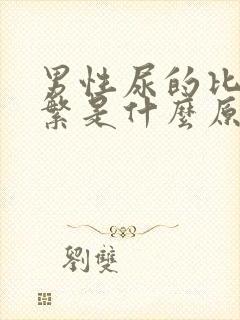 男性尿的比
繁是什麼原
劉雙